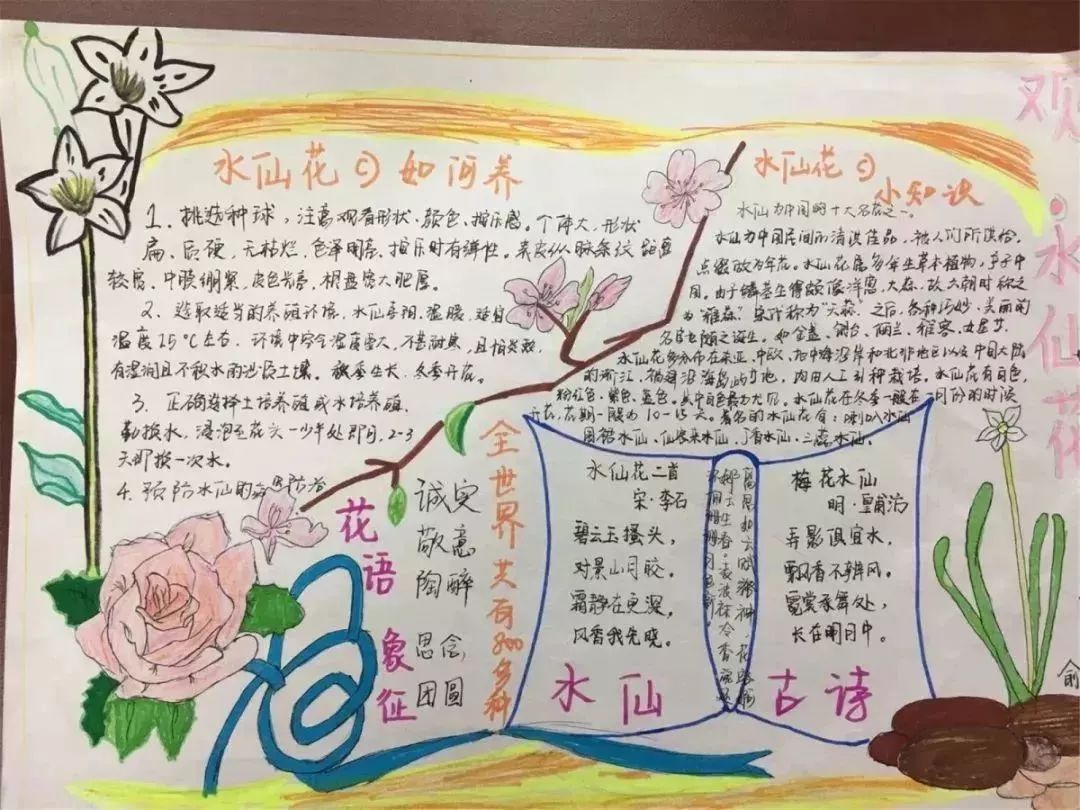 观·水仙花
水仙花日如何养
1、挑选种球，注意观看形状、颜色、按压感。个体大，形状
扁、后硬，无枯烂，色泽明亮，按压时有弹性。表皮纵脉条纹距离
较宽、中膜绷紧、皮色光亮，根盘宽大肥厚。
2、选取适当的养殖环境，水仙喜阳、温暖，适宜
温度15℃左右，环境中空气湿度要大，不甚耐热，且怕炎寒，
有湿润且不积水的沙质土壤。秋季生长，冬季开花。
3、正确选择土培养殖或水培养殖，
勤换水，浸泡至花头一少半处即可，2-3
天即换一次水。
4、预防水仙的
水仙花日
小知识
水仙为中国的十大名花之一。
水仙为中国民间的清供佳品，被人们所供给，
点缀做为年花。水仙花属多年生草本植物，
为“雅蒜”宋代称为“天葱”之后，各种巧妙、美丽的
水仙花多分布在东亚、中欧、地中海沿岸和北非地区以及中国大陆
的浙江、福建沿海岛的等地，内由人工引种栽培。水仙花有白色、
粉红色、紫色、蓝色，其中白色最为尤见。水仙花在冬季一般在一月份的时候
开花，花期一般为10-15天。著名的水仙花有：喇叭水仙
围裙水仙、仙客来水仙、丁香水仙、三蕊水仙。
花语
诚实
敬意
陶醉
象征
思念
团圆
全世界共有800多种
水仙花二首
宋·李石
碧云玉搔头，
对景山月皎。
霜静在更深，
风香我先晓。
梅花水仙
明·皇甫汸
弄影俱宜水，
飘香不辨风。
霓裳承舞处，
长在明月中。
水仙
古诗
俞